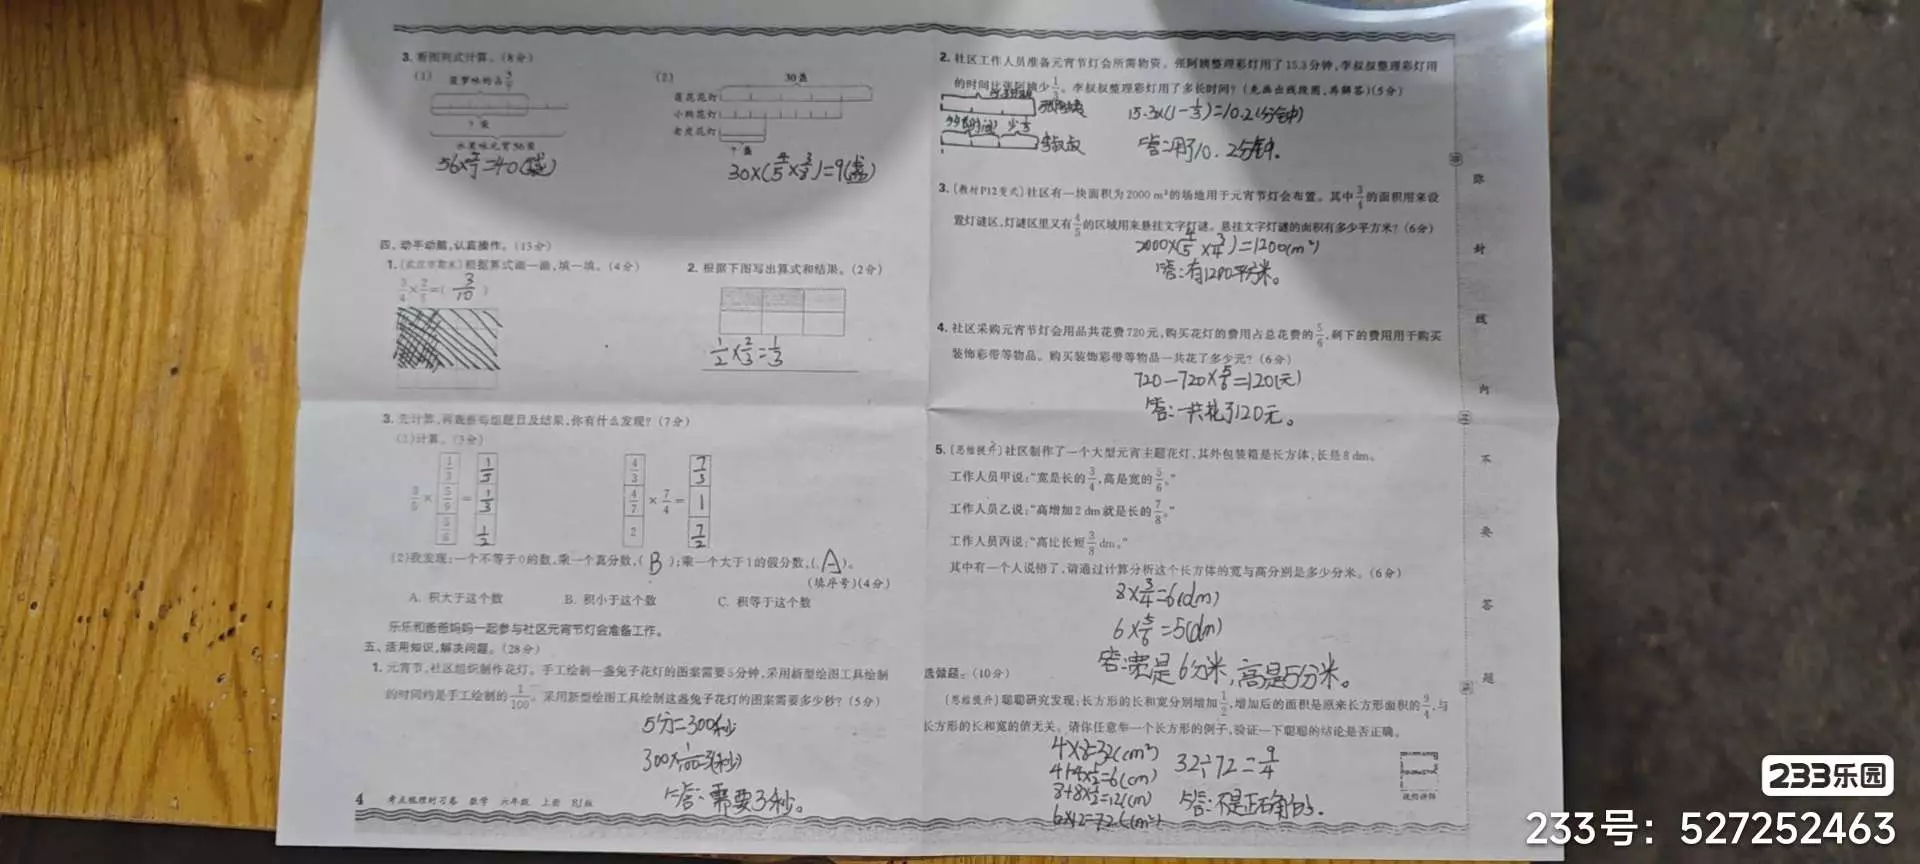 3. 看图列式计算。(8分)
(1) 菠萝味的占5/7
?袋
水果味元宵56袋
56×5/7=40(袋)
(2) 30盏
莲花花灯
小狗花灯
老虎花灯
?盏
30×(4/5×3/8)=9(盏)
四、动手动脑,认真操作。(13分)
1. [武汉市期末]根据算式画一画,填一填。(4分)
3/4×2/5=(3/10)
2. 根据下图写出算式和结果。(2分)
1/2×2/3=1/3
3. 先计算,再观察每组题目及结果,你有什么发现?(7分)
(1)计算。(3分)
3/5× 1/3 5/9 5/6 = 1/5 1/3 1/2
4/3 4/7 2 ×7/4= 7/3 1 7/2
(2)我发现:一个不等于0的数,乘一个真分数,( B );乘一个大于1的假分数,( A )。
(填序号)(4分)
A. 积大于这个数 B. 积小于这个数 C. 积等于这个数
乐乐和爸爸妈妈一起参与社区元宵节灯会准备工作。
五、活用知识,解决问题。(28分)
1. 元宵节,社区组织制作花灯。手工绘制一盏兔子花灯的图案需要5分钟,采用新型绘图工具绘制
的时间约是手工绘制的1/100。采用新型绘图工具绘制这盏兔子花灯的图案需要多少秒?(5分)
5分=300秒
300×1/100=3(秒)
答:需要3秒。
4 考点梳理时习卷 数学 六年级 上册 RJ版
2. 社区工作人员准备元宵节灯会所需物资。张阿姨整理彩灯用了15.3分钟,李叔叔整理彩灯用
的时间比张阿姨少1/3。李叔叔整理彩灯用了多长时间?(先画出线段图,再解答)(5分)
李叔叔
15.3×(1-1/3)=10.2(分钟)
答:用了10.2分钟.
3. [教材P12变式]社区有一块面积为2000 m²的场地用于元宵节灯会布置。其中3/4的面积用来设
置灯谜区,灯谜区里又有4/5的区域用来悬挂文字灯谜。悬挂文字灯谜的面积有多少平方米?(6分)
2000×(4/5×3/4)=1200(m²)
答:有1200平方米。
4. 社区采购元宵节灯会用品共花费720元,购买花灯的费用占总花费的5/6,剩下的费用用于购买
装饰彩带等物品。购买装饰彩带等物品一共花了多少元?(6分)
720-720×5/6=120(元)
答:一共花了120元。
5. [思维提升]社区制作了一个大型元宵主题花灯,其外包装箱是长方体,长是8 dm。
工作人员甲说:“宽是长的3/4,高是宽的5/6。”
工作人员乙说:“高增加2 dm就是长的7/8。”
工作人员丙说:“高比长短3/8 dm。”
其中有一个人说错了,请通过计算分析这个长方体的宽与高分别是多少分米。(6分)
8×3/4=6(dm)
6×5/6=5(dm)
答:宽是6分米,高是5分米。
选做题。(10分)
[思维提升]聪聪研究发现:长方形的长和宽分别增加1/2,增加后的面积是原来长方形面积的9/4,与
长方形的长和宽的值无关。请你任意举一个长方形的例子,验证一下聪聪的结论是否正确。
4×8=32(cm²)
4+4×1/2=6(cm)
8+8×1/2=12(cm)
6×12=72(cm²)
32÷72=9/4
答:不是正确的.
视频讲解
弥
封
线
内
不
要
答
题
233乐园
233号:527252463